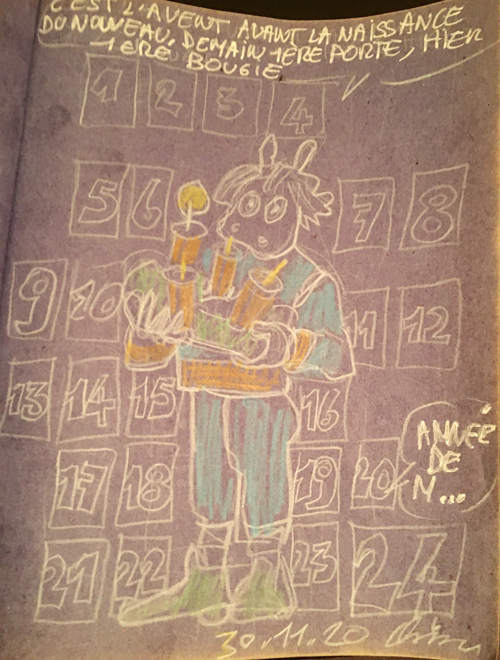 C'EST L'AVENT AVANT LA NAISSANCE
DU NOUVEAU, DEMAIN 1ERE PORTE, HIER
1ERE BOUGIE
1 2 3 4
5 6 7 8
9 10 11 12
13 14 15 16
ANNÉE
DE
N...
17 18 19 20
21 22 23 24
30.11.20